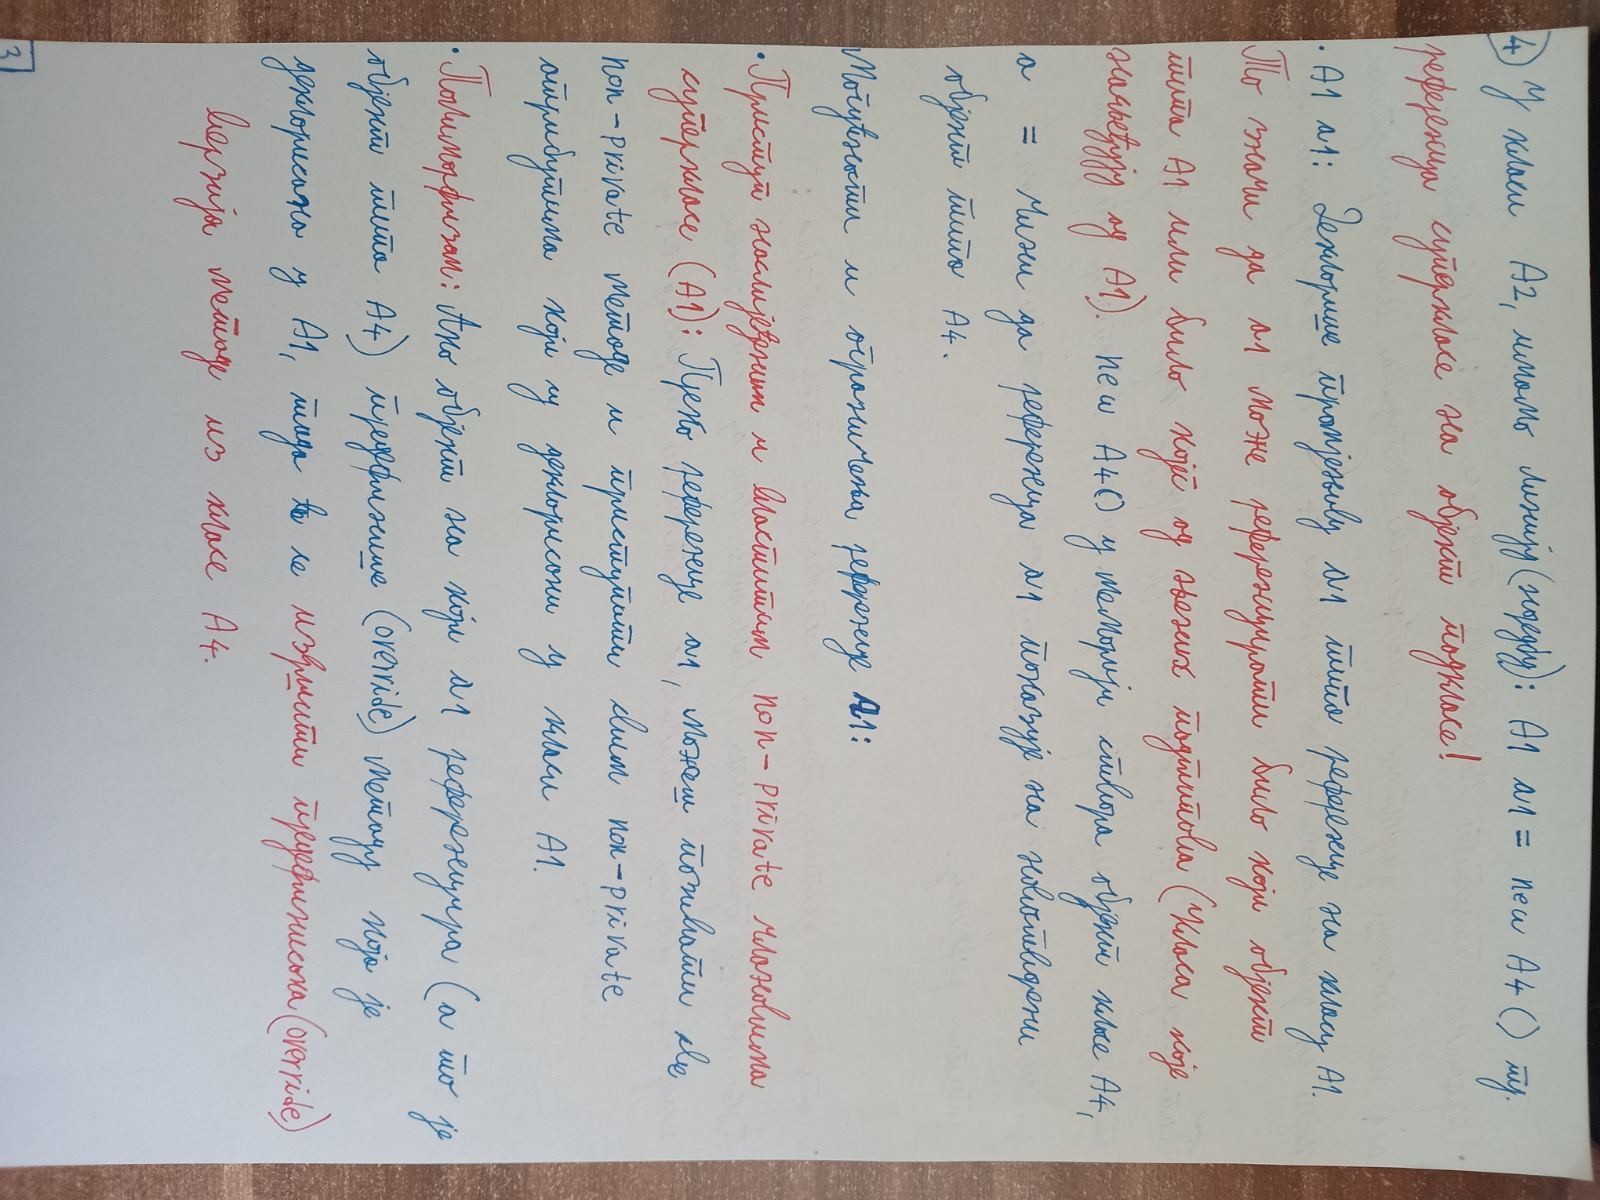 4) У класи A2, имамо линију (наредбу): A1 a1 = new A4() тј.
референца суперкласе на објект подкласе!
· A1 a1: Декларише промјењиву a1 типа референце на класу A1.
То значи да a1 може референцирати било који објект
типа A1 или било којег од њених подтипова (класа које
насљеђују од A1). new A4() у меморији ствара објект класе A4,
а = чини да референца a1 показује на новостворени
објект типа A4.
Могућности и ограничења референце A1:
· Приступ наслијеђеним и властитим non-private члановима
суперкласе (A1): Преко референце a1, можеш позивати све
non-private методе и приступати свим non-private
атрибутима који су декларисани у класи A1.
· Полиморфизам: Ако објект на који a1 референцира (а то је
објект типа A4) предефинише (override) методу која је
декларисана у A1, тада ће се извршити предефинисана (override)
верзија методе из класе A4.
3